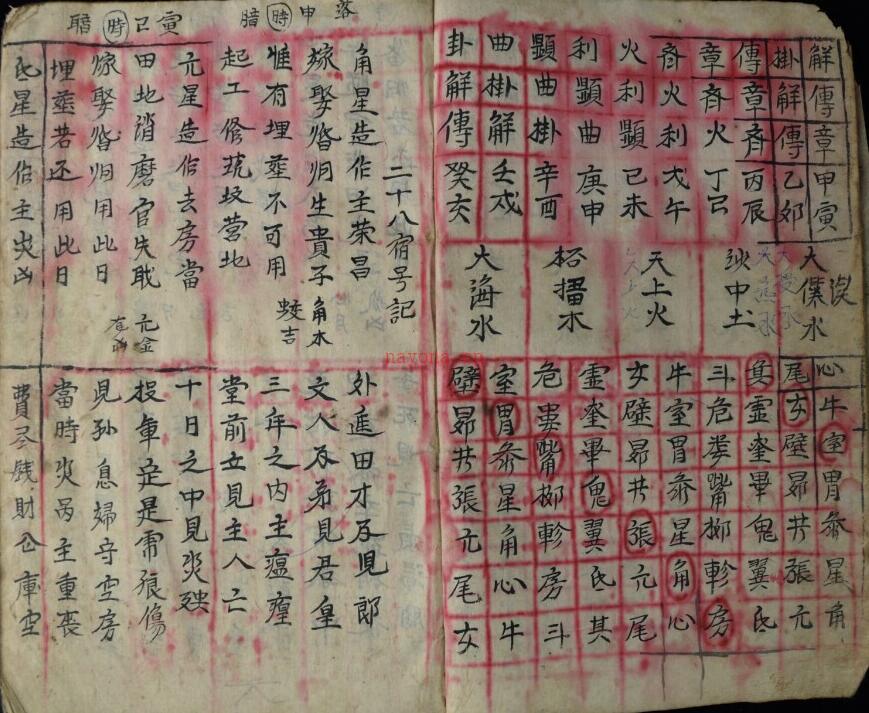 解傳章甲寅
掛解傳乙卯
傳章斉丙辰
章斉火丁巳
斉火利戊午
火利顯己未
利顯曲庚申
顯曲掛辛酉
曲掛解壬戌
卦解傳癸亥
大溪水
沙中土
天上火
石榴木
大海水
心牛室胃参星角
尾女壁昴井張亢
箕虚奎畢鬼翼氐
斗危娄嘴柳軫房
牛室胃参星角心
女壁昴井張亢尾
虚奎畢鬼翼氐其
危娄嘴柳軫房斗
室胃参星角心牛
壁昴井張亢尾女
二十八宿号記
落申時暗
寅巳時暗
角星造作主荣昌
外進田才及見郎
嫁娶婚归生貴子
文人及弟見君皇
惟有埋葬不可用
三年之内主瘟瘟
起工修筑坟营地
堂前立見主人亡
角木
蛟吉
亢星造作去房當
十日之中見災殃
田地消磨官失职
投軍定是需狼傷
嫁娶婚归用此日
児孫息婦守空房
埋葬若还用此日
當時災禍主重喪
亢金
氐星造作主災凶
費尽钱財仓庫空
navona.cn